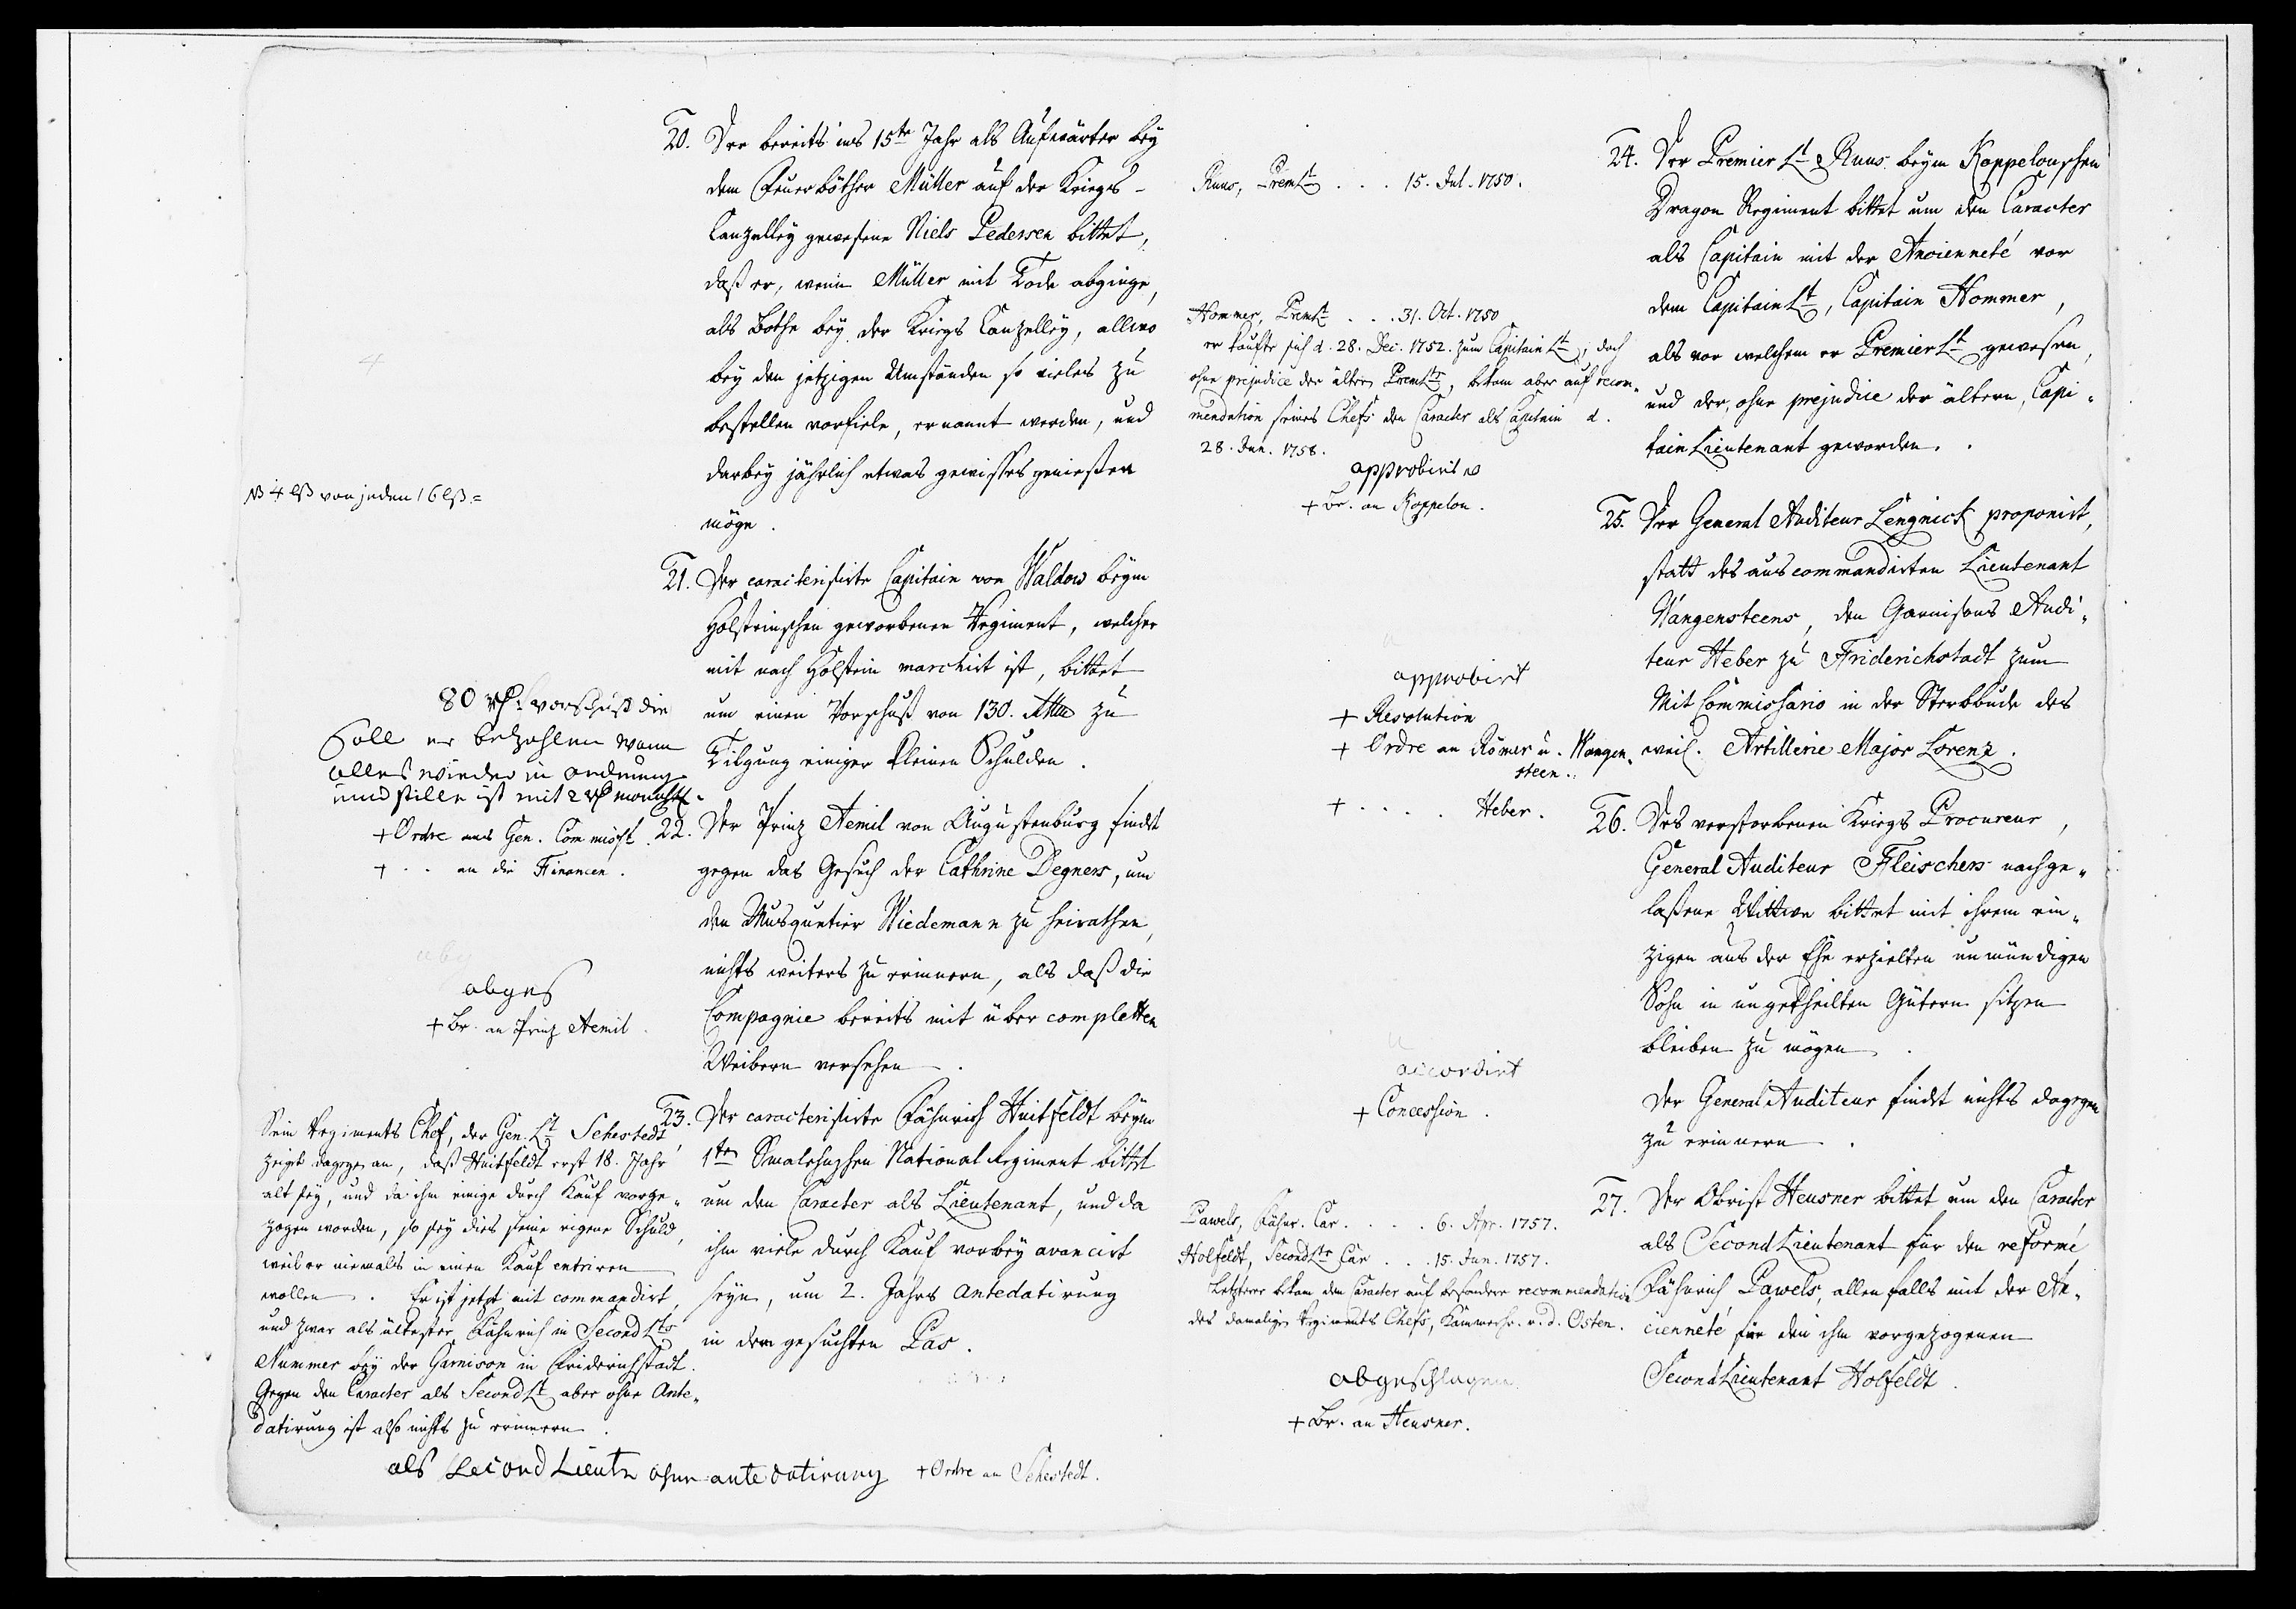 20. Der bereits ins 15te Jahr als Aufwärter bey
dem Feuerböther Müller auf der Kriegs-
Canzelley gewesene Niels Pedersen bittet,
daß er, wenn Müller mit Tode abginge,
als Bothe bey der Kriegs Canzelley, allwo
bey den jetzigen Umständen so vieles zu
bestellen vorfiele, ernannt werden, und
darbey jährlich etwas gewisses genießen
möge.
4 lß von jeden 16 lß
21. Der caracterisirte Capitain von Waldow beym
Holsteinschen geworbenen Regiment, welcher
mit nach Holstein marchirt ist, bittet
um einen Vorschuß von 130. Rthlr zu
Tilgung einiger kleinen Schulden.
80 Vorschuß die
soll er bezahlen wann
alles wieder in ordnung
und stille ist mit 2 monathl.
+ Ordre ans Gen. Commisst.
+ . . an die Financen.
22. Der Prinz Aemil von Augustenburg findet
gegen das Gesuch der Cathrine Degners, um
den Musquetier Wiedemann zu heirathen,
nichts weiters zu erinnern, als daß die
Compagnie bereits mit über completten
Weibern versehen.
abges
+ Br. an Prinz Aemil.
23. Der caracterisirte Fähnrich Huitfeldt beym
1ten Smalehnschen National Regiment bittet
um den Caracter als Lieutenant, und da
ihm viele durch Kauf vorbey avancirt
seyn, um 2. Jahrs antedatirung
in dem gesuchten Pas.
Sein Regiments Chef, der Gen. Lt Sehestedt,
zeigt dagegen an, daß Huitfeldt erst 18. Jahr
alt sey, und da ihm einige durch Kauf vorge-
zogen worden, so sey dies seine eigene Schuld,
weil er niemals in einen Kauf entriren
wollen. Er ist jetzt mit commandirt,
und zwar als ältester Fähnrich in Second Lts
Nummer bey der Garnison in Friderichstadt.
Gegen den Caracter als Second Lt aber ohne Ante-
datirung ist also nichts zu erinnern.
als Second Lieutn ohne antedatirung + Ordre an Sehestedt.
24. Der Premier Lt Ruus beym Koppelouschen
Dragon Regiment bittet um den Caracter
als Capitain mit der Ancienneté vor
dem Capitain Lt, Capitain Hommer,
als vor welchem er Premier Lt gewesen,
und der, ohne prejudice der ältern, Capi-
tain Lieutenant geworden.
Ruus, Prem Lt . . . 15. Jul. 1750.
Hommer, Prem Lt . . . 31. Oct. 1750
er kaufte sich d. 28. Dec. 1752. zum Capitain Lt, doch
ohne prejudice der ältern Prem Lts, bekam aber auf recom-
mendation seines Chefs den Caracter als Capitain d.
28. Jun. 1758.
approbirt
+ Br. an Koppelou.
25. Der General Auditeur Lengnick proponirt,
statt des auscommandirten Lieutenant
Wangensteens, den Garnisons Audi-
teur Heber zu Friderichstadt zum
Mit Commissario in der Sterbbude des
weil. Artillerie Major Lorenz.
approbirt
+ Resolution
+ Ordre an Römer u. Wangen-
steen.
+ . . . Heber.
26. Des verstorbenen Kriegs Procureur,
General Auditeur Fleischers nachge-
laßene Wittwe bittet mit ihrem ein-
zigen aus der Ehe erzielten unmündigen
Sohn in ungetheilten Gütern sitzen
bleiben zu mögen.
Der General Auditeur findet nichts dagegen
zu erinnern.
accordirt
+ Concession.
27. Der Obrist Heusner bittet um den Caracter
als Second Lieutenant für den reformé
Fähnrich Pawels, allenfalls mit der An-
cienneté für den ihm vorgezogenen
Second Lieutenant Holfeldt.
Pawels, Fähnr. Car. . . . 6. Apr. 1757.
Holfeldt, Second Lts Car . . . 15. Jun. 1757.
Letzterer bekam den Caracter auf besondere recommendation
des damaligen Regiments Chefs, Kammerhr. v. d. Osten.
abgeschlagen
+ Br. an Heusner.